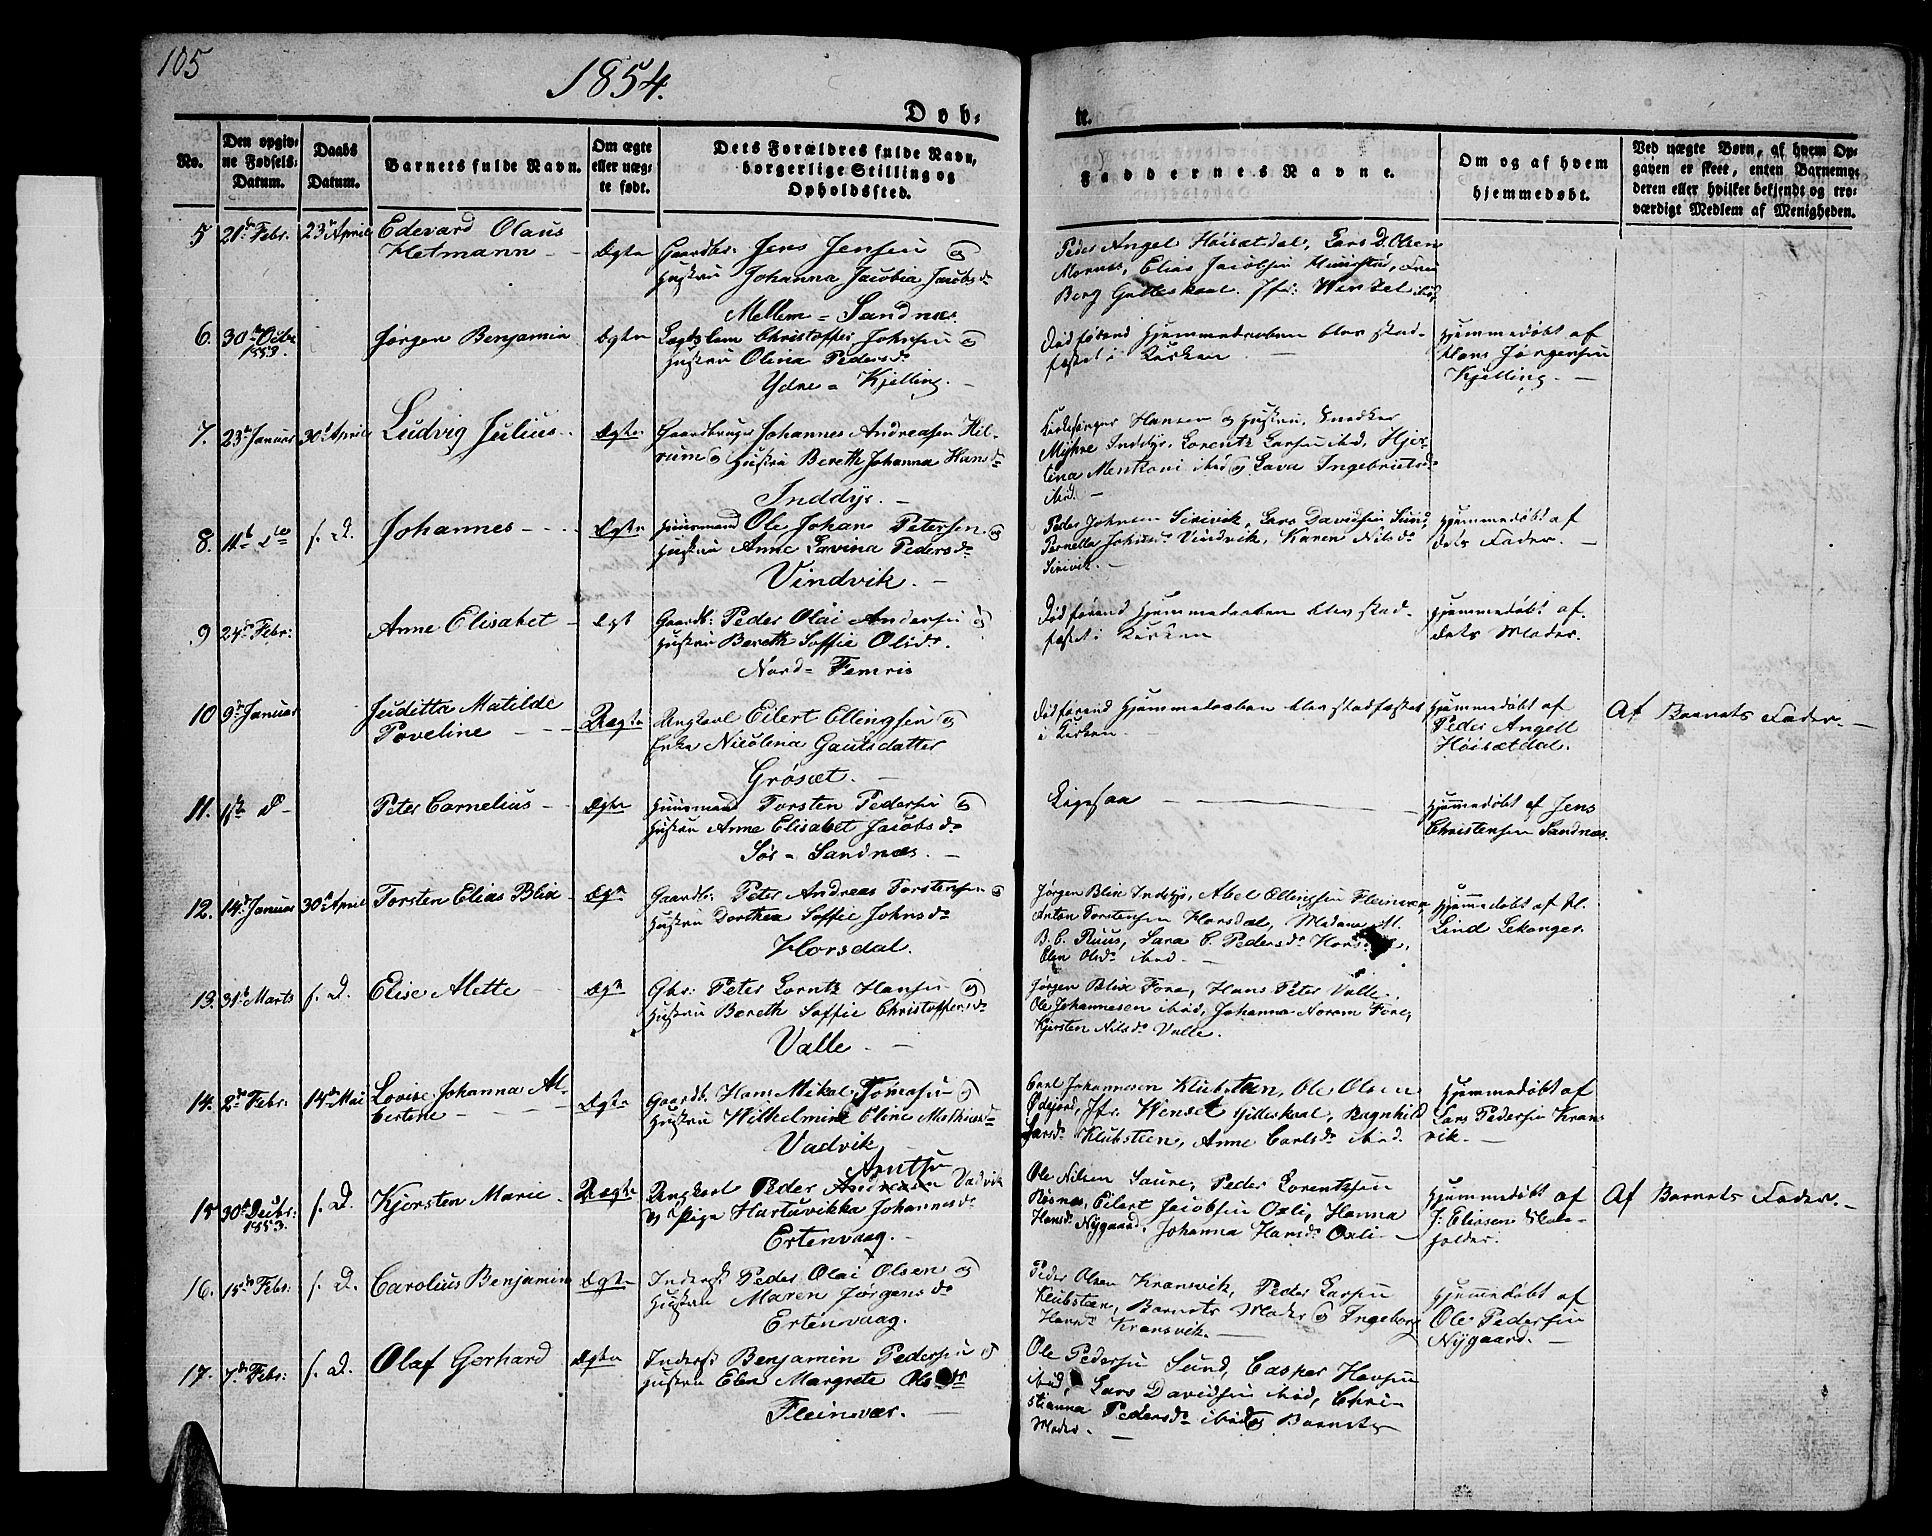 105
1854.
Døb-
te.
No.
Den opgiv-
ne Fødsels-
Datum.
Daabs
Datum.
Barnets fulde Navn.
Om ægte
eller uæg-
te født.
Dets Forældres fulde Navn,
borgerlige Stilling og
Opholdssted.
Faddernes Navne.
Om og af hvem
hjemmedøbt.
Ved uægte Børn, af hvem Op-
gaven er skeet, enten Barnemo-
deren eller hvilket bekjendt og tro-
værdigt Medlem af Menigheden.
5 21de Febr. 23de April
Edevard Olaus
Hetmann - Ægte
Gaardbr: Jens Jensen og
Hustru Johanna Jacobia Jacobsdr
Mellem-Sandnæs.
Peder Angel Høisætdal, Lars D. Olsen
Mornes, Elias Jacobsen
Berg Gilleskaal. Jfr: Wenzel
6. 30te Octbr
1853.
Jørgen Benjamin Ægte
Lægdslem Christoffer Johnsen og
Hustru Olina Pedersdr
Ydre-Kjelling.
Ved førend Hjemmedaaben blev stad-
fæstet i Kirken
Hjemmedøbt af
Hans Jørgensen
Kjelling. -
7. 23de Januar 30te April
Ludvig Julius Ægte
Gaardbruger Johannes Andreasen Hil-
rum og Hustru Bereth Johanna Hansdr
Inddyr. -
Kirkesanger Hansen og Hustru, Snedker
Myhre Inddyr, Lorentz Larsen ibid, Hjer-
tina Mentzoni ibid og Lava Ingebrigtsdr
ibid. -
8. 11te do s. D. Johannes - Ægte
Huusmand Ole Johan Petersen og
Hustru Anne Lovina Pedersdr
Vindvik. -
Peder Johnsen Sirivik, Lars Davidsen Sund,
Pernella Johnsdr Vindvik, Karen Nilsdr
Sirivik. -
Hjemmedøbt af
dets Fader. -
9 24de Febr: Anne Elisabet - Ægt
Gaardb: Peder Olai Andersen og
Hustru Bereth Soffie Olsdr.
Nord-Femris
Ved førend Hjemmedaaben blev stad-
fæstet i Kirken
Hjemmedøbt af
dets Moder.
10 9de Januar
Juditta Matilde
Poveline - Uægte
Ungkarl Eilert Ellingsen og
Enke Nicolina Gautsdatter
Grøsæt. -
Ved førend Hjemmedaaben blev stadfæstet
i Kirken. -
Hjemmedøbt af
Peder Angell
Høisætdal.
Af Barnets Fader. -
11. 1ste do Peter Cornelius - Ægte
Huusmand Torsten Pedersen og
Hustru Anne Elisabet Jacobsdr
Sør-Sandnæs. -
Ligesaa -
Hjemmedøbt af Jens
Christensen Sandnæs.
12. 14de Januar 30te April Torsten Elias Blix Ægte
Gaardb: Peter Andreas Torstensen og
Hustru Dorthea Soffie Johnsdr
Horsdal.
Jørgen Blix Inddyr, Abel Ellingsen Fleinvær
Anton Torstensen Horsdal, Madame M.
B. C. Ruus, Sara C. Pedersdr
Elen Olsdr ibid. -
Hjemmedøbt af
Lind Lekanger.
13. 31te Marts s. D. Elise Alette Ægte
Gbr: Peter Lorntz Hansen og
Hustru Bereth Soffie Christoffersdr
Valle. -
Jørgen Blix Fore, Hans Peter Valle,
Ole Johannesen ibid, Johanna Norum Fore,
Kjersten Nilsdr Valle.
14. 2de Febr. 14de Mai
Lovise Johanna Al-
bertine - Ægte
Gaardb. Hans Mikal Tomasen og
Hustru Wilhelmine Oline Mathiasdr
Vadvik
Carl Johannesen Klubsteen, Ole Olsen
Ødejord, Jfr: Wensel Gilleskaal, Ragnhild
Larsdr Klubsteen, Anne Carlsdr ibid.
Hjemmedøbt af
Lars Pedersen Krans-
vik. -
15 30te Decbr:
1853.
s. D. Kjersten Marie - Uægte
Arntsen
Ungkarl Peder Andreasen Vadvik
og Pige Hartuvikka Johannesdr
Ertenvaag. -
Ole Nilsen Saure, Peder Lorentzsen
Røsnæs, Eilert Jacobsen Oxli, Hanna
Hansdr Nygaard, Johanna Hansdr Oxli -
Hjemmedøbt af
J: Eliasen
Af Barnets Fader. -
16. 15de Febr: s. D. Carolius Benjamin Ægte
Inderst Peder Olai Olsen og
Hustru Maren Jørgensdr
Ertenvaag.
Peder Olsen Kransvik, Peder Larsen
Klubsteen, Barnets Moder og Ingeborg
Hansdr Kransvik. -
Hjemmedøbt af
Ole Pedersen
Nygaard. -
17. 7de Febr: s. D. Olaf Gerhard Ægte
Inderst Benjamin Pedersen og
Hustru Elen Margrete
Fleinvær. -
Ole Pedersen Sund, Casper Hansen
ibid, Lars Davidsen ibid, Chri-
stianna Pedersdr ibid og Barnets
Moder. -